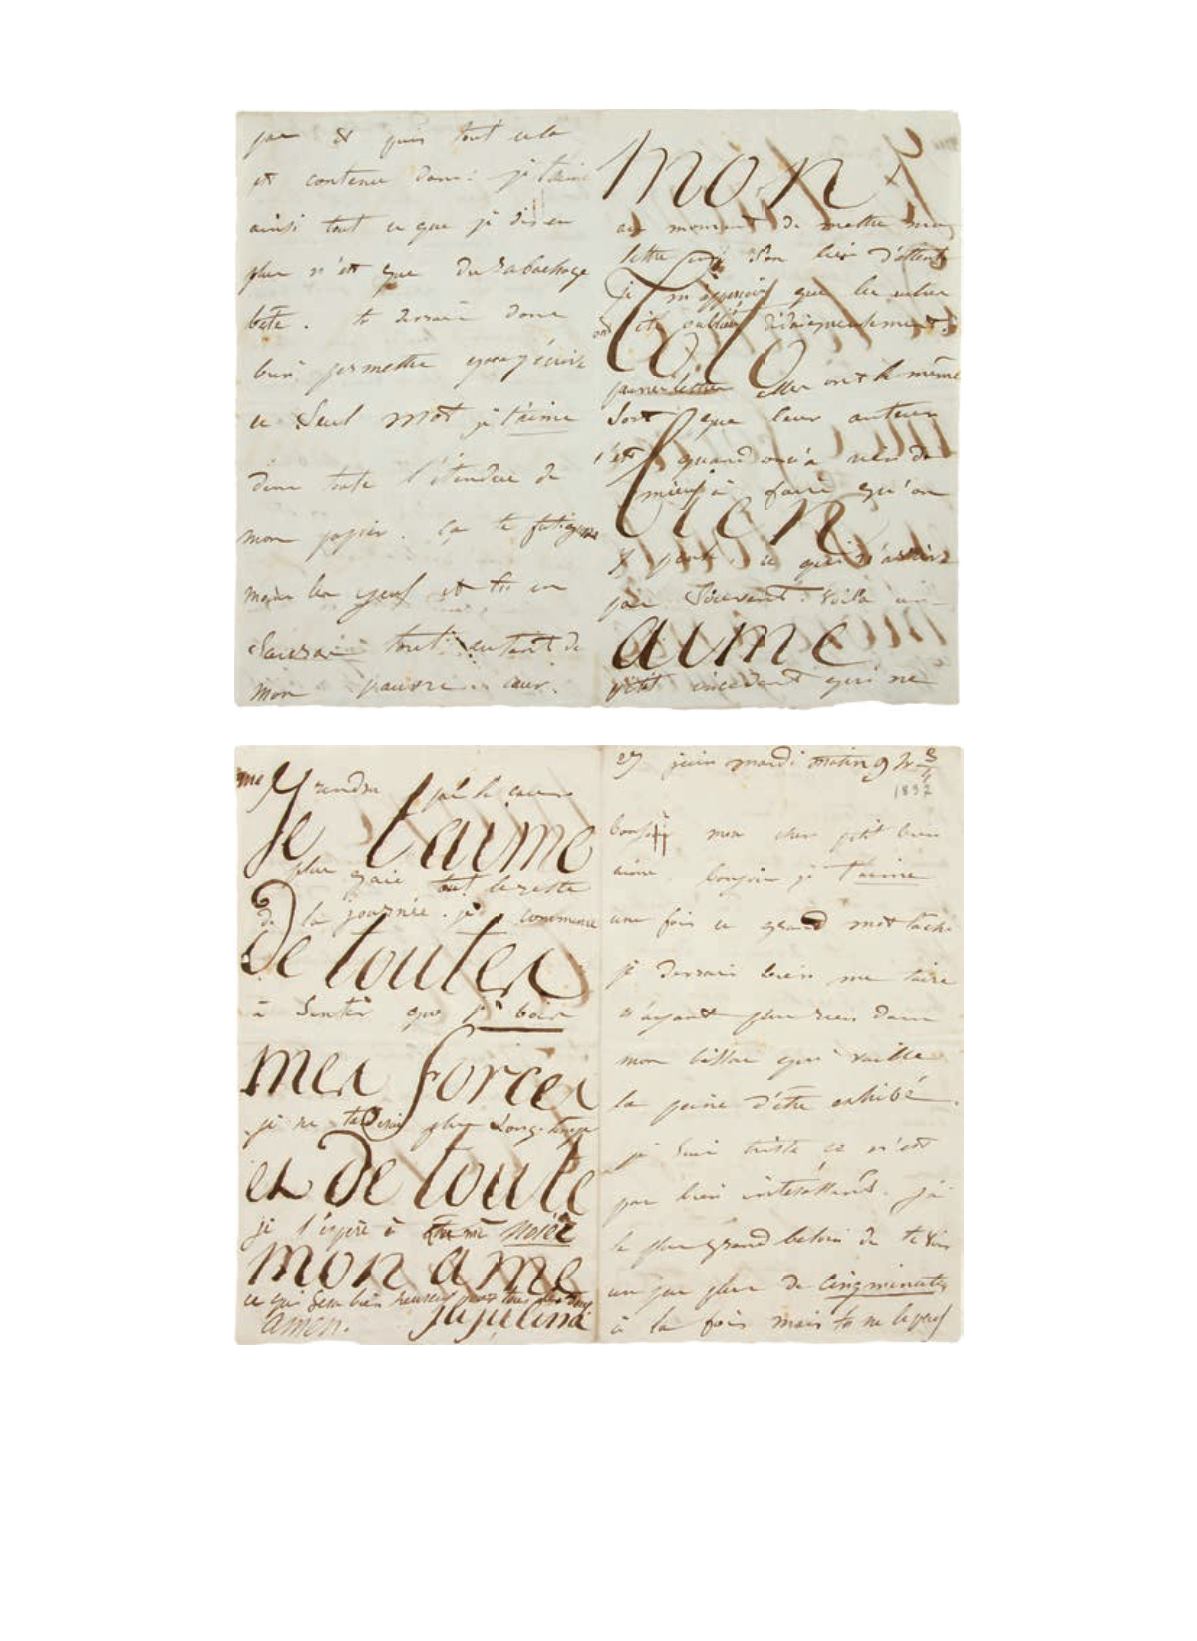 pas et puis tout cela
est contenu dans : je t'aime
ainsi tout ce que je dis en
plus n'est que du rabachage
bête. tu devrais donc
bien permettre que j'écrive
ce seul mot je t'aime
dans toute l'étendue de
mon papier. ça te fatiguerait
moins les yeux et tu en
saurais tout autant de
mon pauvre cœur.
mon
au moment de mettre ma
lettre dans son lieu d'attente
je m'aperçois que les autres
Toto
ont été oubliées dédaigneusement.
pauvres lettres elles ont le même
sort que leur auteur
c'est quand on n'a rien de
mieux à faire qu'on
bien
y pense, ce qui n'arrive
pas souvent. Voilà un
aimé
petit incident qui ne
me rendra pas le cœur
Je t'aime
plus gaie tout le reste
de la journée. je commence
De toutes
à sentir que je bois
mes forces
je ne plus Longtemps
et De toute
je l'espère à
mon ame
ce qui sera bien heureux pour tous les deux
amen. juju
27 juin mardi matin 9 h 3/4
1837
bonjour mon cher petit bien
aimé. bonjour je t'aime
une fois ce grand mot lâché
je devrais bien me taire
n'ayant plus rien dans
mon bissac qui vaille
la peine d'être exhibé.
je suis triste ce n'est
pas bien intéressant. j'ai
le plus grand besoin de te voir
un peu plus de cinq minutes
à la fois mais tu ne le peux